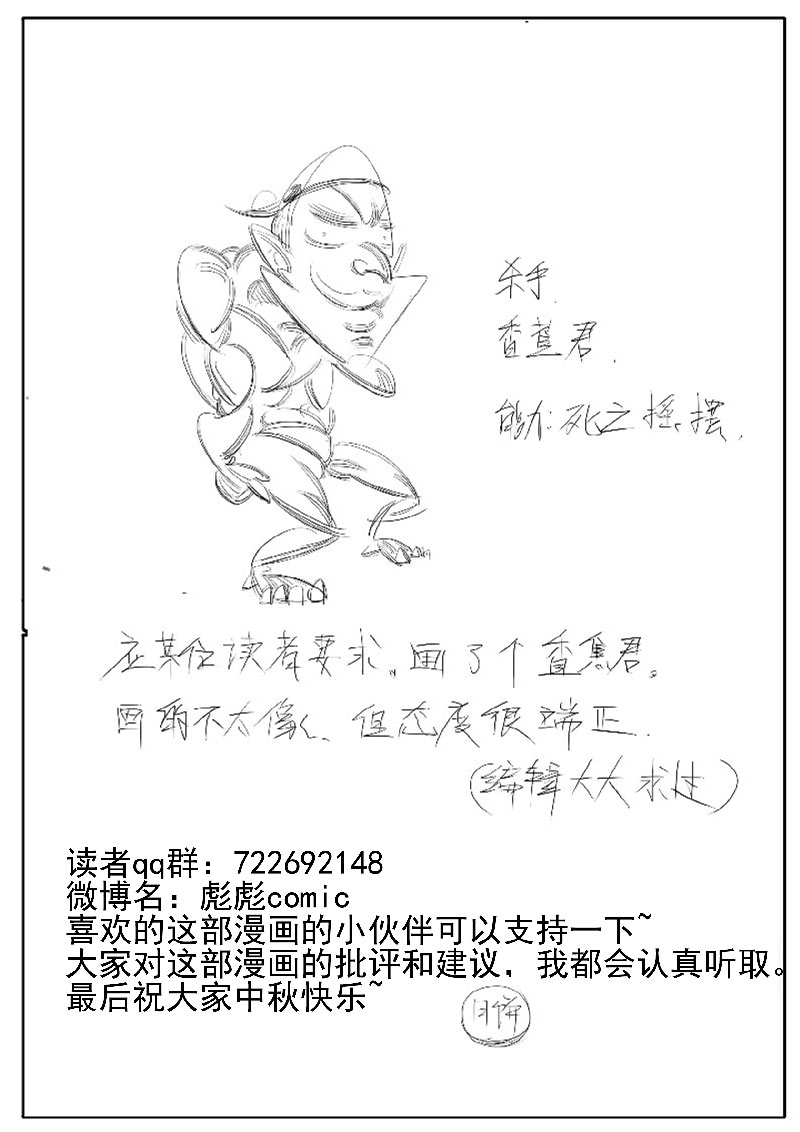 杀手.
香蕉君.
能力:死之摇摆.
应某位读者要求,画了个香蕉君。
画的不太像、但态度很端正.
(编辑大大求过)
读者qq群：722692148
微博名：彪彪comic
喜欢的这部漫画的小伙伴可以支持一下~
大家对这部漫画的批评和建议，我都会认真听取。
最后祝大家中秋快乐~
月饼